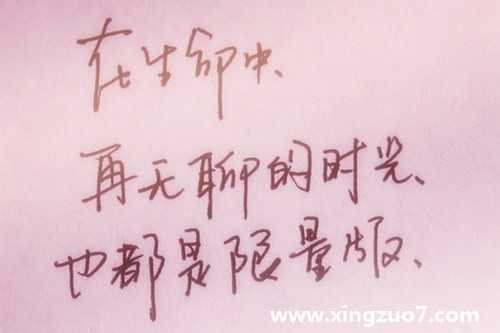 在生命中、
再无聊的时光、
也都是限量版、
www.xingzuo7.com